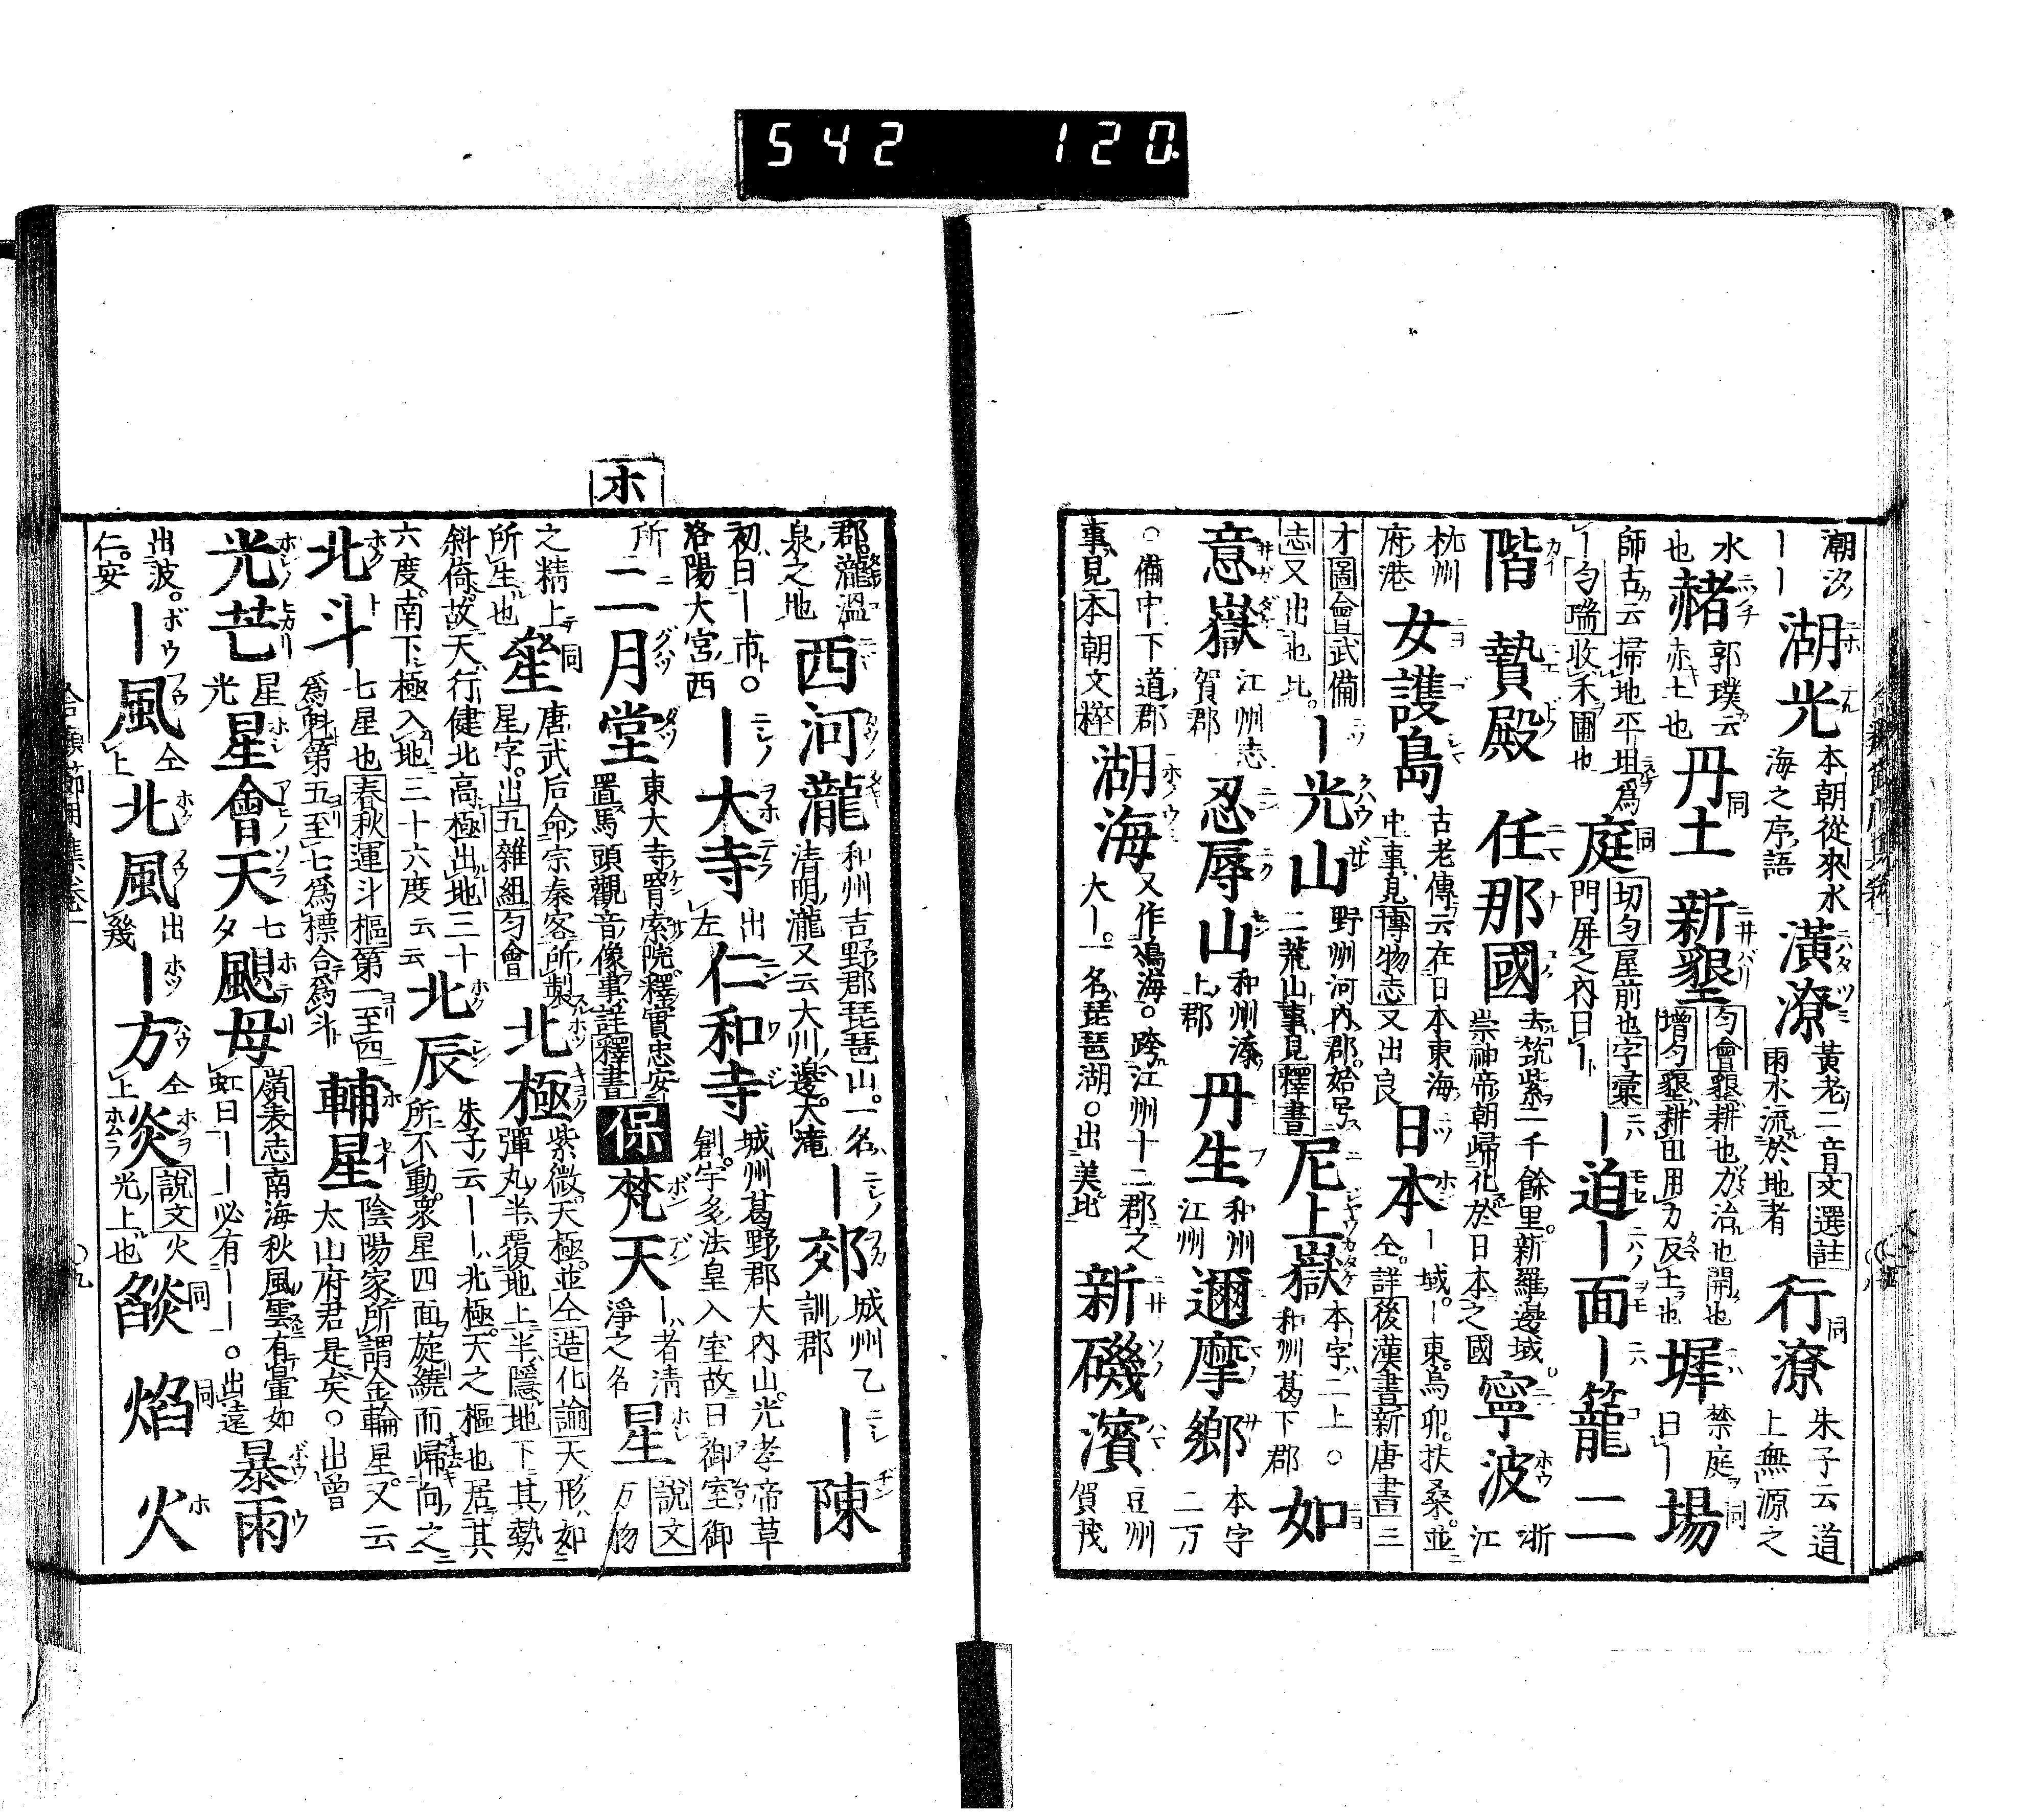 542 120
潮次ーー湖光本朝從來水海之序語潢潦黃老二音文選註雨水流於地者行潦同朱子云道上無源之
水也赭郭璞云赤土也丹土同新墾匀會墾耕也力治也開也增匀墾耕田用力反土也墀禁庭曰ー場同
師古云掃地平坦爲ー匀瑞收禾圃也庭同切匀屋前也字彙門屏之內曰ーー迫ー面ー籠二
階贄殿任那國去筑紫二千餘里新羅邊域崇神帝朝歸化於日本之國寧波浙江
杭州府港女護島古老傳云在日本東海中事見博物志又出良日本ー域ー東烏卯扶桑並仝詳後漢書新唐書三
才圖會武備志又出也比ー光山野州河內郡始号二荒山事見釋書尼上嶽本字二上○和州葛下郡如
意嶽江州志賀郡忍辱山和州添上郡丹生和州江州邇摩鄉本字二万
○備中下道郡事見本朝文粹湖海又作鳰海○跨江州十二郡之大ー一名琵琶湖○出美比新磯濱豆州賀茂
郡瀧溫泉之地西河瀧和州吉野郡琵琶山一名清明瀧又云大川邊大滝ー郊城州乙訓郡ー陳
初日ー市○洛陽大宮西ー大寺出左仁和寺城州葛野郡大內山光孝帝草創宇多法皇入室故曰御室御
所二月堂東大寺羂索院釋實忠安置馬頭觀音像事詳釋書保梵天ー者清淨之名星說文万物
之精上所生也同唐武后命宗秦客所製星字出五雜組匀會北極紫微天極並仝造化論天形如彈丸半覆地上半隱地下其勢
斜倚故天行健北高極出地三十六度南下極入地三十六度云云北辰朱子云ーー北極天之樞也居其所不動衆星四面旋繞而歸向之
北斗七星也春秋運斗樞第一至四爲魁第五至七爲標合爲斗輔星陰陽家所謂金輪星又云太山府君是矣○出曾
光芒星光星會天七夕颶母嶺表志南海秋風雲有暈如虹曰ーー必有ーー○出遠暴雨
出波仁安ー風仝上北風出幾ー方仝上炎說文火光上也燄同焰同火
ホ
合類節用集卷一
○九